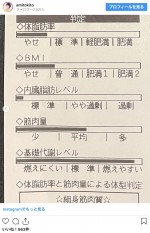 amitokiko
プロフィールを見る
判定
◇体脂肪率
やせ | 標 準 | 軽肥満 | 肥満
◇BMI
やせ | 普 通 | 肥満1 | 肥満2
◇内臓脂肪レベル
標 準 | やや過剰 | 過剰
◇筋肉量
少 | 平均 | 多
◇基礎代謝レベル
燃えにくい | 標準 | 燃えやすい
◇体脂肪率と筋肉量による体型判定
☆細身筋肉質☆
Instagramでもっと見る
いいね!